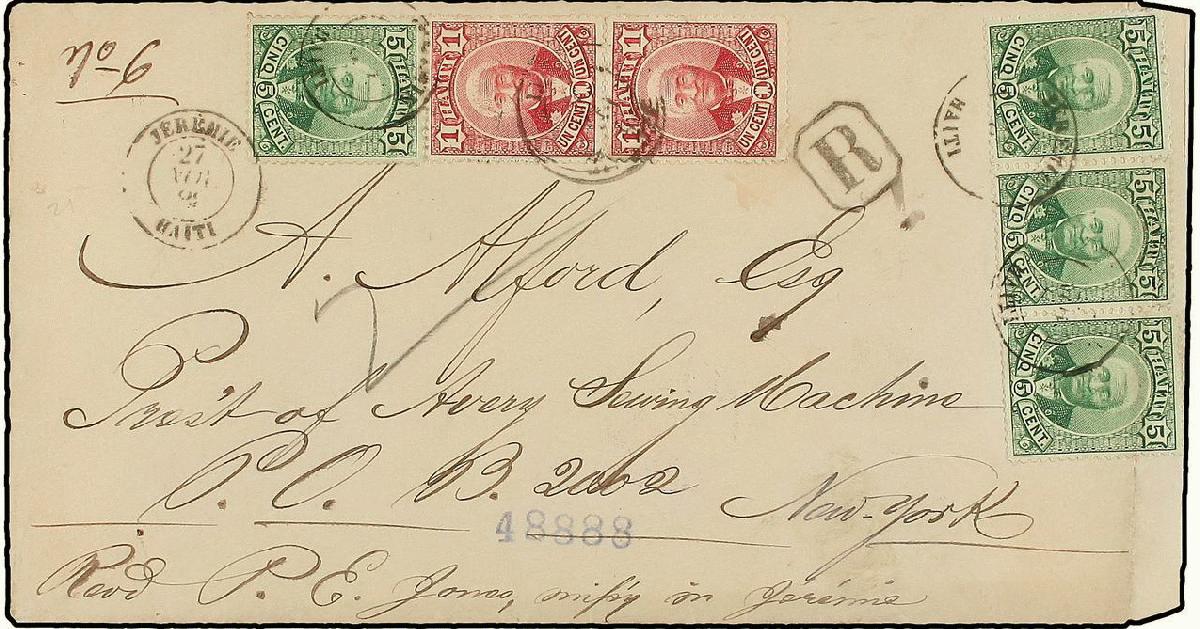 JÉRÉMIE
27
HAITI
5 5 CINQ 5 CENT. HAITI
1 1 UN CENT HAITI
1 1 UN CENT HAITI
R
HAITI
5 5 CINQ 5 CENT. HAITI
5 5 CINQ 5 CENT. HAITI
5 5 CINQ 5 CENT. HAITI
A. Alford, Esq
Prest of Avery Sewing Machine
P. O. B. 2002 New-York
48888
Revd P. E. Jones, miss'y in Jérémie